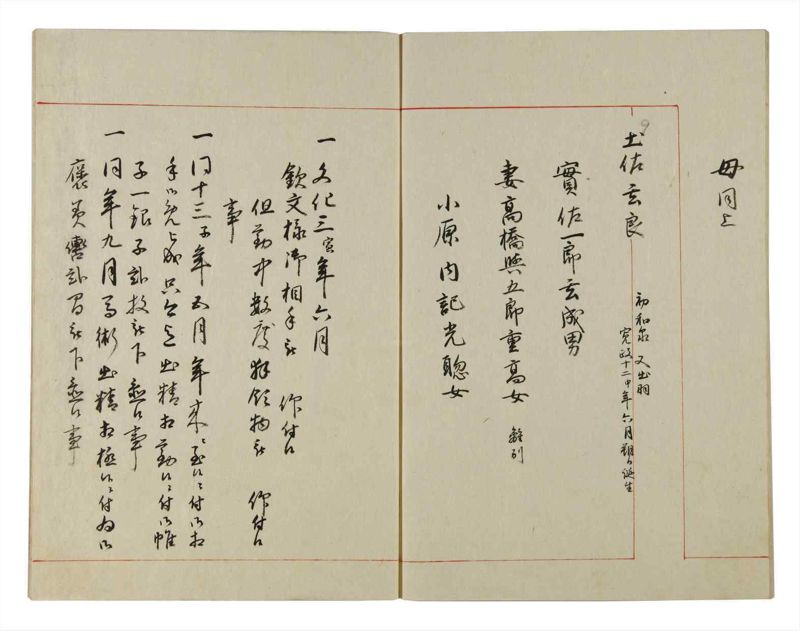 母同上
土佐玄良
初和泉 又出羽
寛政十二申年六月朔日誕生
實佐一郎玄成男
妻高橋與五郎重高女 離別
小原内記光聰女
一文化三寅年六月
欽文様御相手被 仰付候
但勤中数度拝領物被 仰付候
事
一同十三子年五月年来
出精相勤候ニ付御帷
子一銀子弐枚被下置候事
一同年九月馬術出精相極候ニ付為御
褒美轡弐間被下置候事